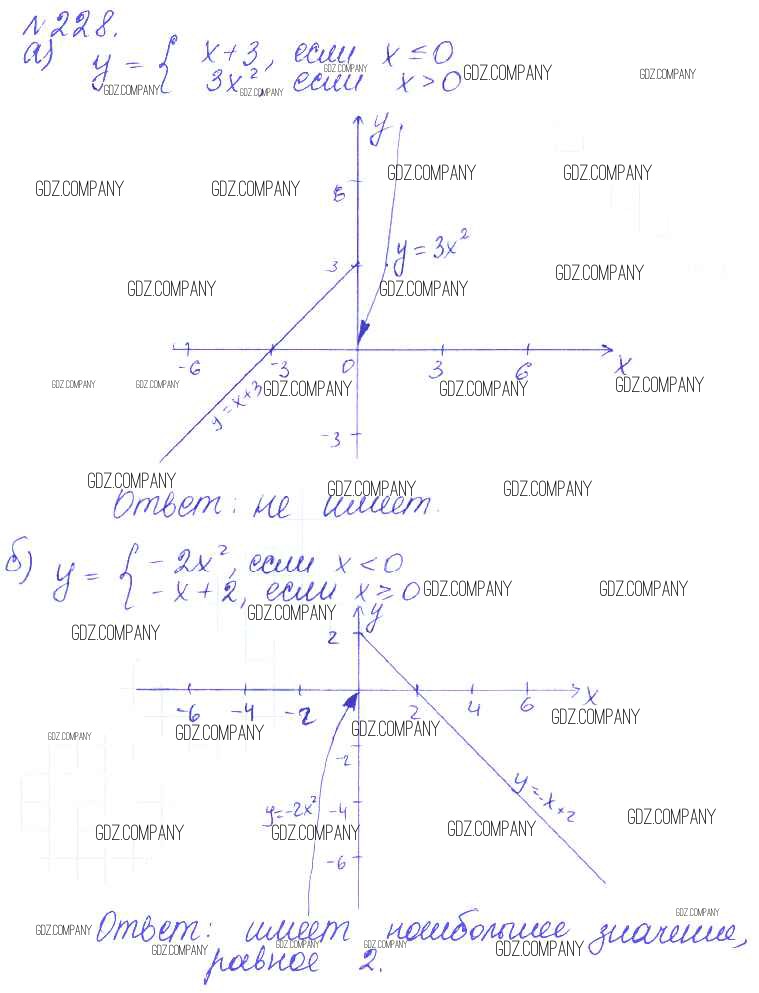 №228.
а) y = { x+3, если x ≤ 0
3x², если x > 0
GDZ.COMPANY GDZ.COMPANY GDZ.COMPANY GDZ.COMPANY GDZ.COMPANY
y
GDZ.COMPANY GDZ.COMPANY GDZ.COMPANY GDZ.COMPANY
6
y = 3x²
3
GDZ.COMPANY GDZ.COMPANY GDZ.COMPANY
-6 -3 0 3 6 x
GDZ.COMPANY GDZ.COMPANY GDZ.COMPANY GDZ.COMPANY GDZ.COMPANY
y = x+3
-3
GDZ.COMPANY GDZ.COMPANY GDZ.COMPANY
Ответ: не имеет.
б) y = { -2x², если x < 0
-x+2, если x ≥ 0
GDZ.COMPANY GDZ.COMPANY
GDZ.COMPANY GDZ.COMPANY
y
2
-6 -4 -2 2 4 6 x
GDZ.COMPANY GDZ.COMPANY GDZ.COMPANY GDZ.COMPANY
-2
y=-2x² -4 y=-x+2
GDZ.COMPANY GDZ.COMPANY GDZ.COMPANY GDZ.COMPANY
-6
Ответ: имеет наибольшее значение,
равное 2.
GDZ.COMPANY GDZ.COMPANY GDZ.COMPANY GDZ.COMPANY GDZ.COMPANY GDZ.COMPANY